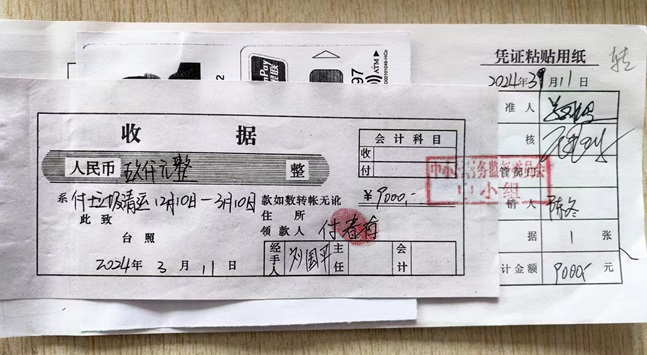 凭证粘贴用纸
转
2024年3月11日
准人
核
管部门
销人 陈冬
据 1 张
计金额 9000 元
ATM
97
收据
会计科目
收
付
人民币 玖仟元整 整
系 付 清运 12月10日—3月10日 款如数转帐无讹 ¥9000,-
此致 住所
台照 领款人 付春有
2024年3月11日
经手人 刘国平 主任 会计
务监督委员会
小组